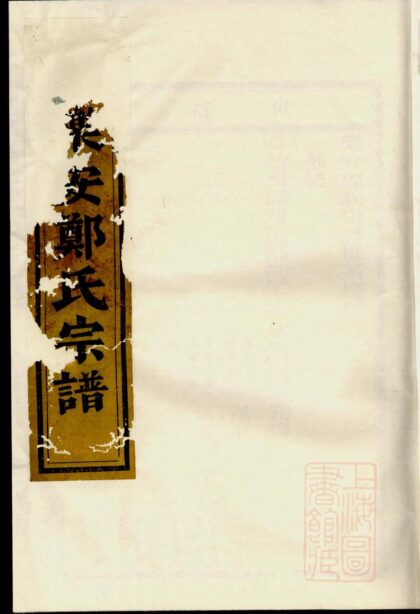 安鄭氏宗譜
上海圖
書館藏